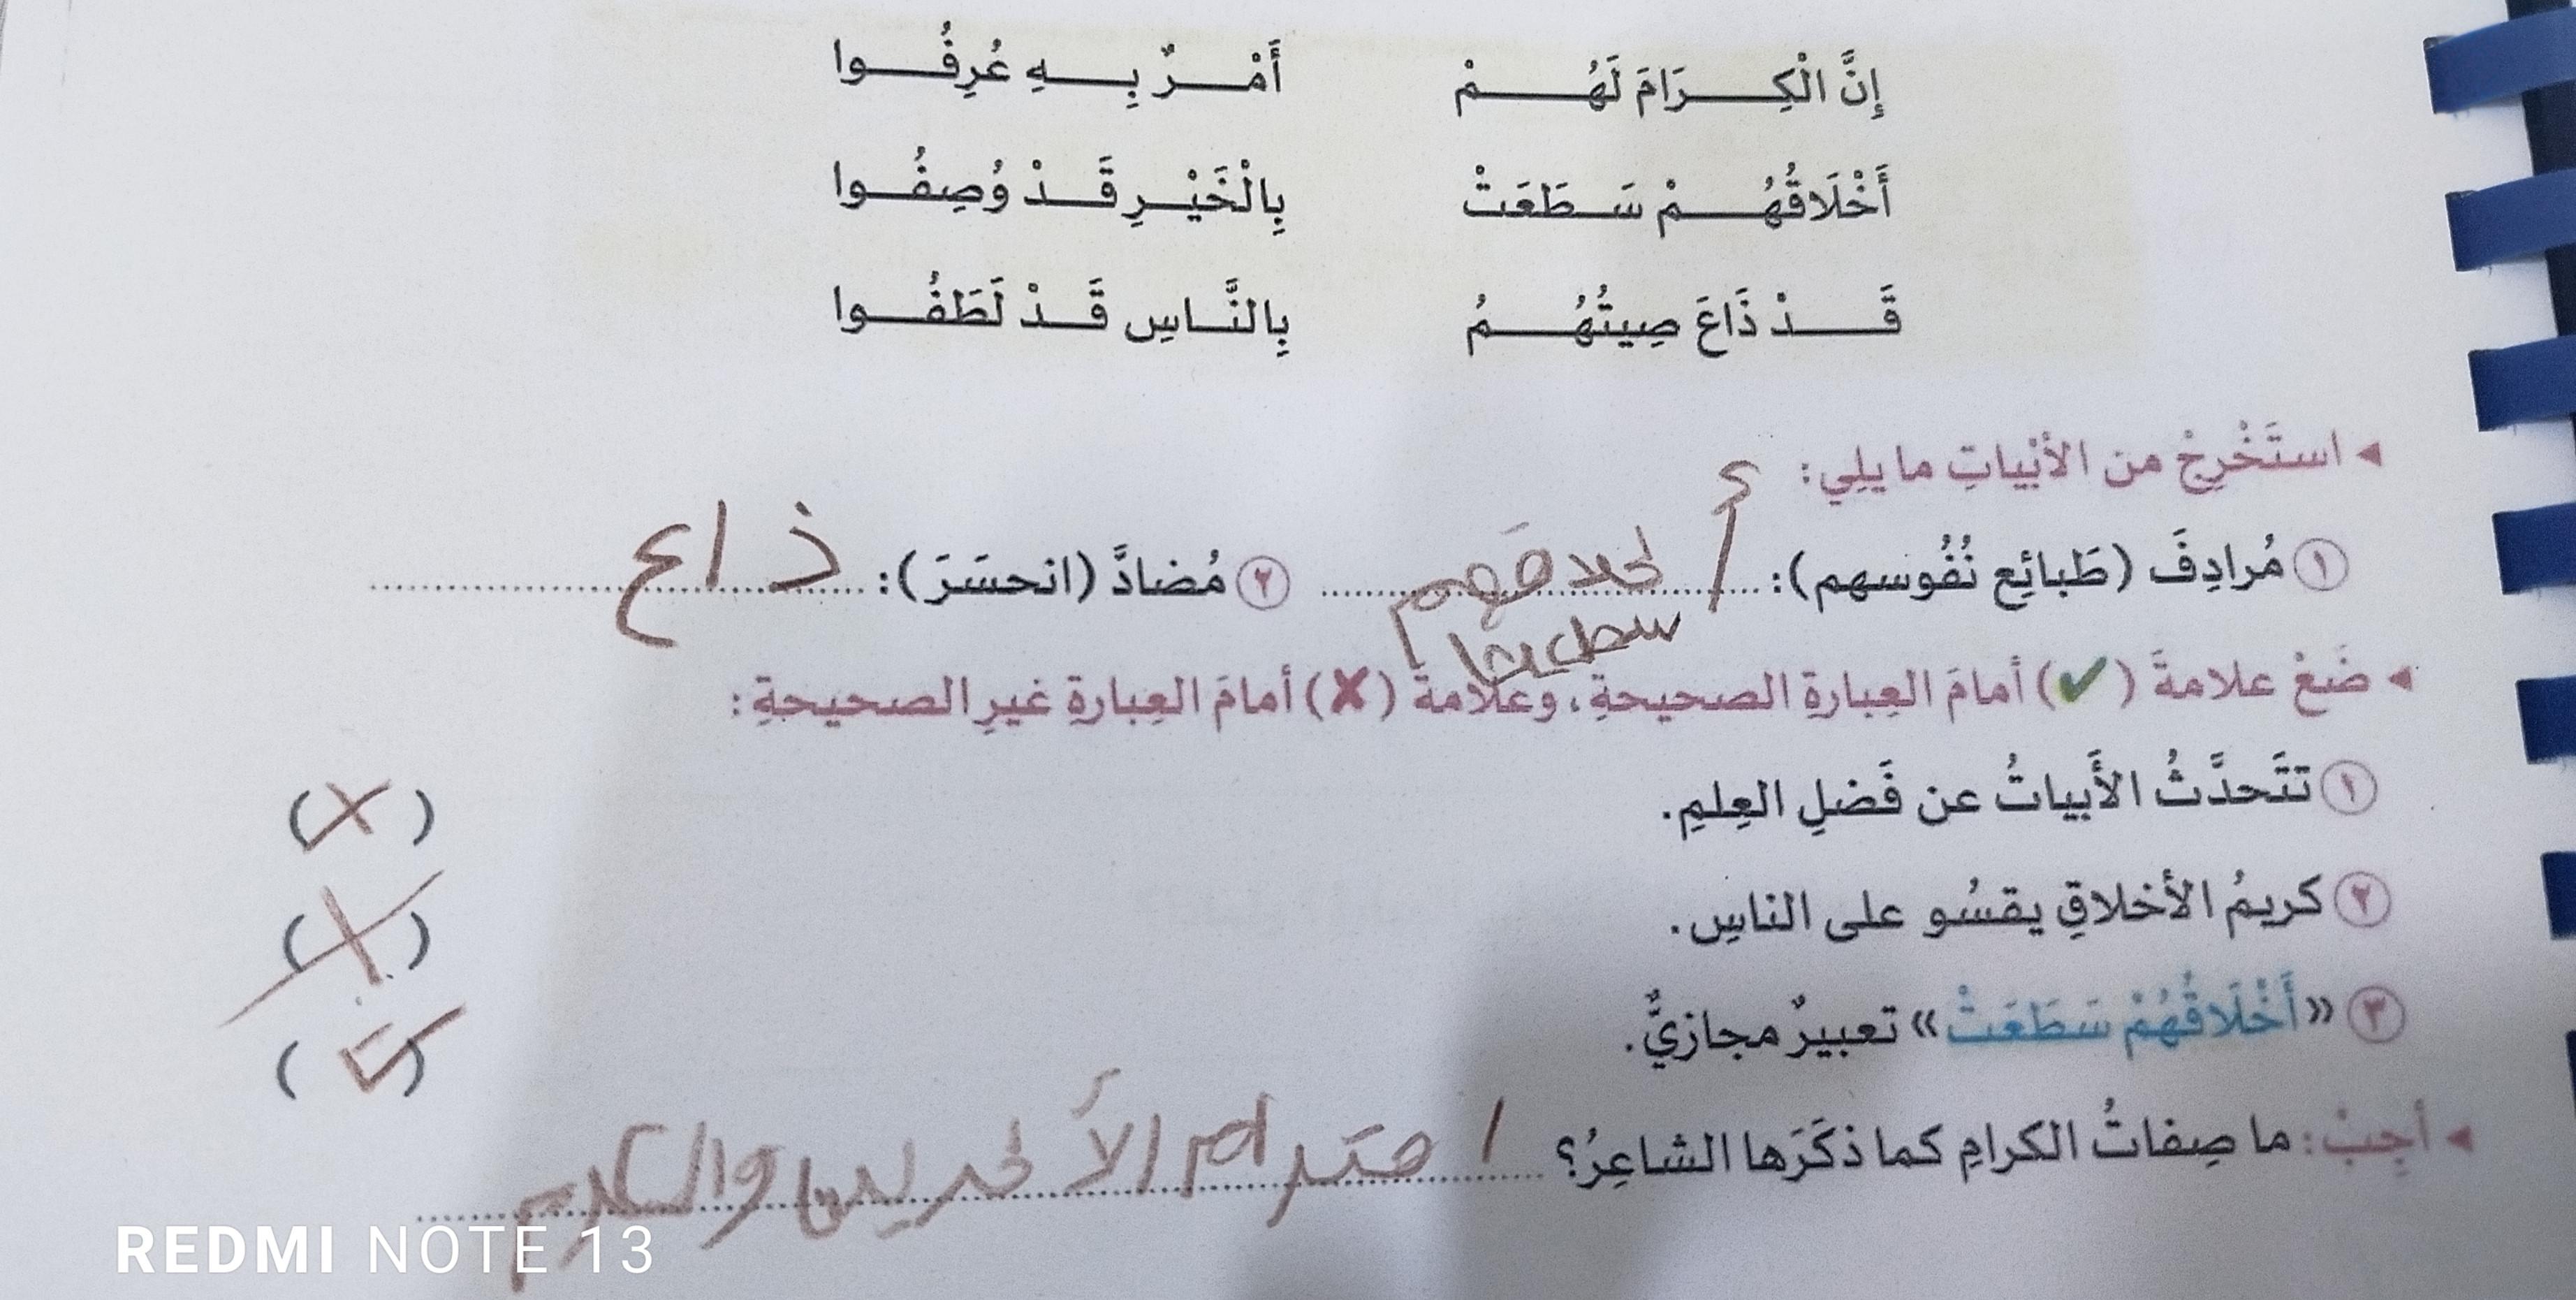 إِنَّ الْكِرَامَ لَهُمْ أَمْرٌ بِهِ عُرِفُوا
أَخْلَاقُهُمْ سَطَعَتْ بِالْخَيْرِ قَدْ وُصِفُوا
قَدْ ذَاعَ صِيتُهُمُ بِالنَّاسِ قَدْ لَطَفُوا
◂ استَخْرِجْ من الأبْياتِ ما يلِي:
١ مُرادِفَ (طَبائِع نُفُوسهم): أخلاقهم ٢ مُضادَّ (انحسَرَ): ذاع
◂ ضَعْ علامةَ (✔) أمامَ العِبارةِ الصحيحةِ، وعلامةَ (✘) أمامَ العِبارةِ غيرِ الصحيحةِ:
١ تتَحدَّثُ الأَبياتُ عن فَضلِ العِلمِ. (✗)
٢ كريمُ الأخلاقِ يقسُو على الناسِ. (✗)
٣ «أَخْلَاقُهُمْ سَطَعَتْ» تعبيرٌ مجازيٌّ. (✓)
◂ أجِبْ: ما صِفاتُ الكرامِ كما ذكَرَها الشاعِرُ؟ احترام الأخرين والكرم
REDMI NOTE 13